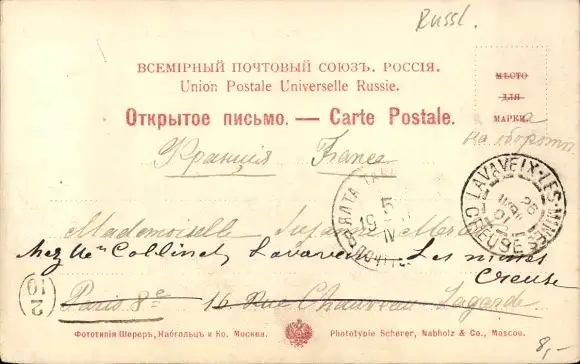 Russl.
ВСЕМІРНЫЙ ПОЧТОВЫЙ СОЮЗЪ. РОССІЯ.
Union Postale Universelle Russie.
Открытое письмо. — Carte Postale.
МѢСТО
ДЛЯ
МАРКИ.
на оборотѣ
Франція France
ЯЛТА
5
19
IV
LAVAVEIX-LES-MINES
26
01
CREUSE
Mademoiselle
chez Mr Collinet, Lavaveix Les mines
Creuse
2
10
Paris 8e 16 Rue Chauveau Lagarde
Фототипія Шереръ, Набгольцъ и Ко. Москва.
Phototypie Scherer, Nabholz & Co., Moscou.
8,-